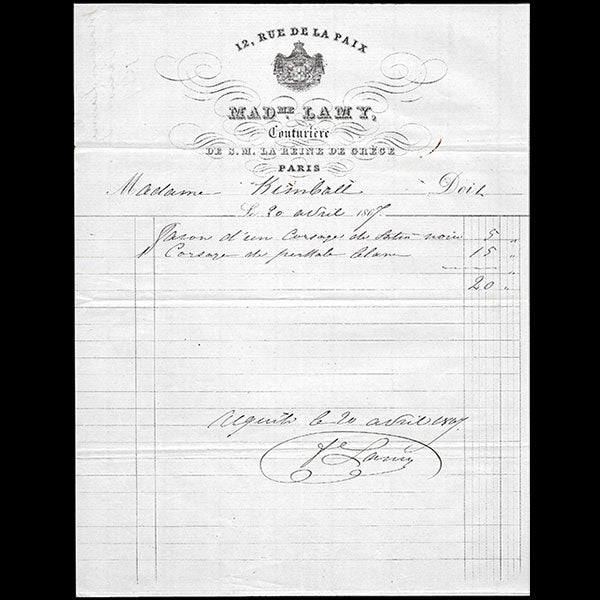 12, RUE DE LA PAIX
MADME. LAMY,
Couturière
DE S. M. LA REINE DE GRÈCE
PARIS
Madame Kimball Doit
Le 20 avril 1867.
Façon d'un Corsage de satin noir 5 "
1 Corsage de perkale blanc 15 "
20 "
acquité le 20 avril 1867.
Lamy